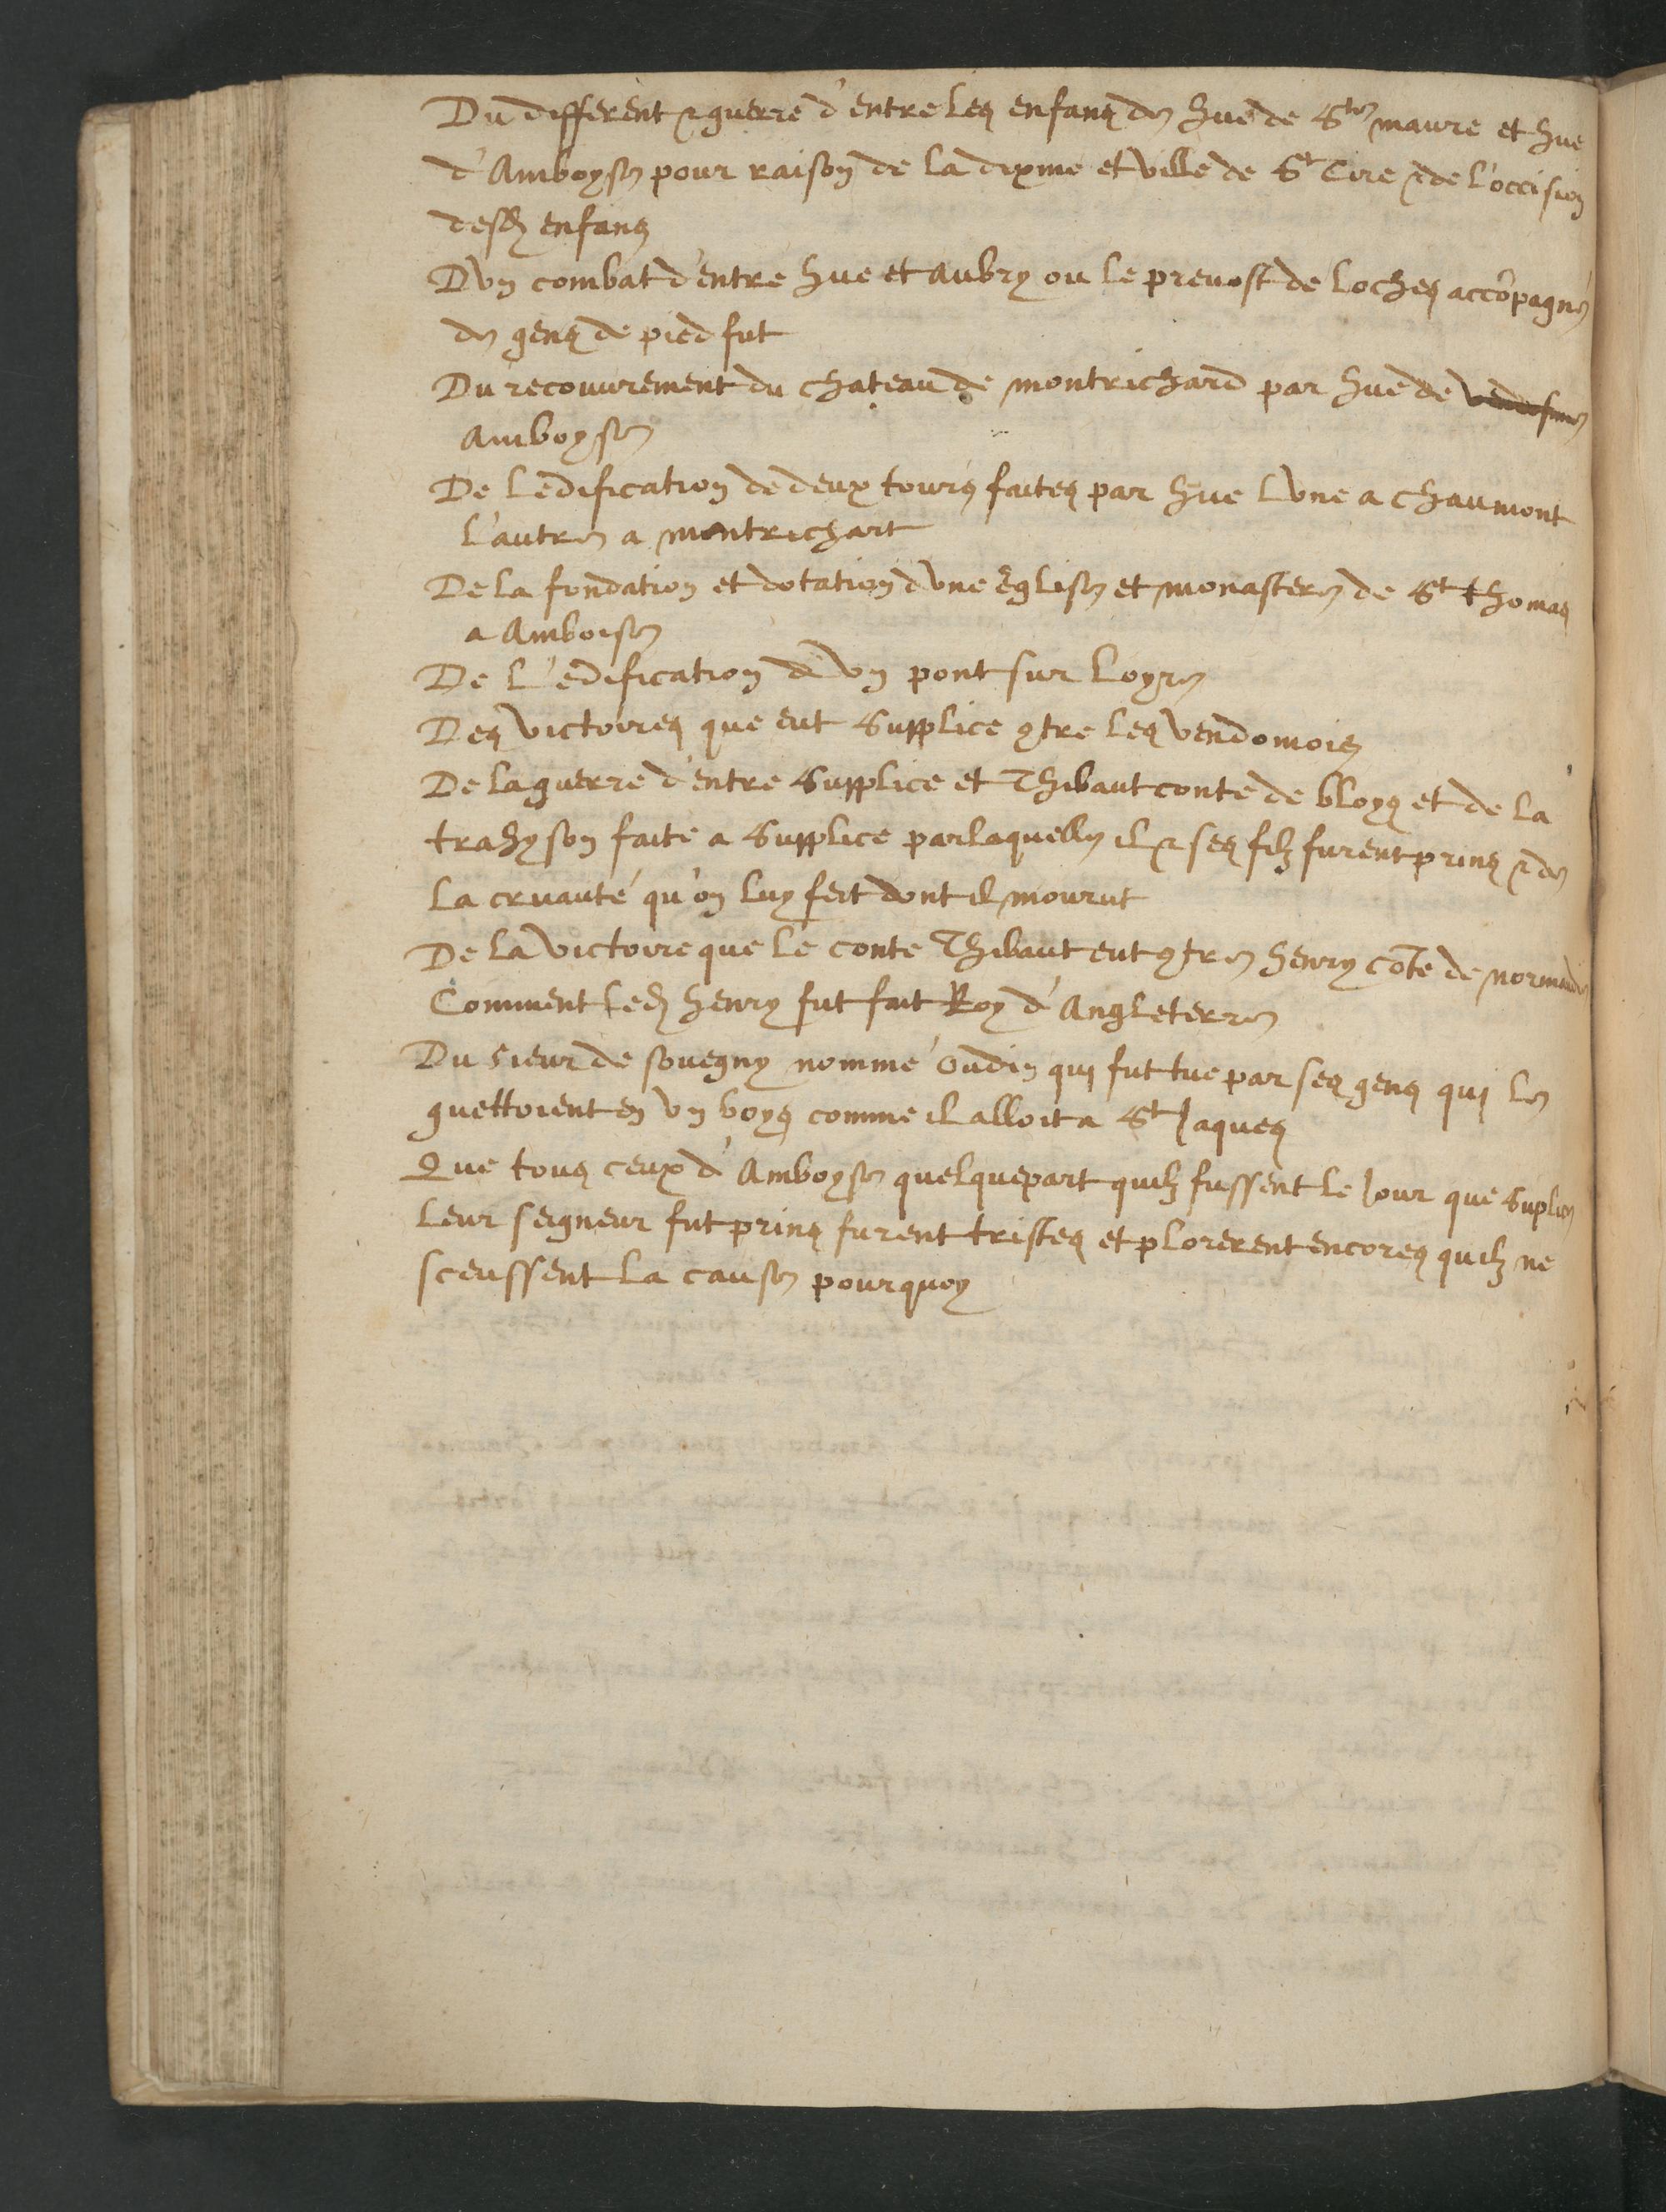 Du different & guerre d'entre les enfans de Hue de Ste maure et Hue
d'Amboyse pour raison de la dixme et ville de St Cire & de l'occision
desd enfans
D'vn combat d'entre Hue et Aubry ou le prevost de loches accōpagné
de gens de pied fut
Du recouurement du chateau de montrichard par Hue de
Amboyse
De l'edification de deux tours faites par Hue l'vne a chaumont
l'autre a montrichart
De la fondation et dotation d'vne Eglise et monastere de St Thomas
a Amboise
De l'edification d'vn pont sur loyre
Des victoires que eut Supplice 9tre les vendomois
De la guerre d'entre Supplice et Thibaut conte de bloys et de la
trahyson faite a Supplice par laquelle il & ses filz furent prins & de
la cruauté qu'on luy feit dont il mourut
De la victoire que le conte Thibaut eut 9tre Henry cōte de normandie
Comment led Henry fut fait Roy d'Angleterre
Du sieur de souegny nommé oudin qui fut tue par ses gens qui le
guettoient en vn boys comme il alloit a St Jaques
Que tous ceux d'Amboyse quelque part quilz fussent le jour que Suplice
leur seigneur fut prins furent tristes et plorerent encores quilz ne
sceussent la cause pourquoy